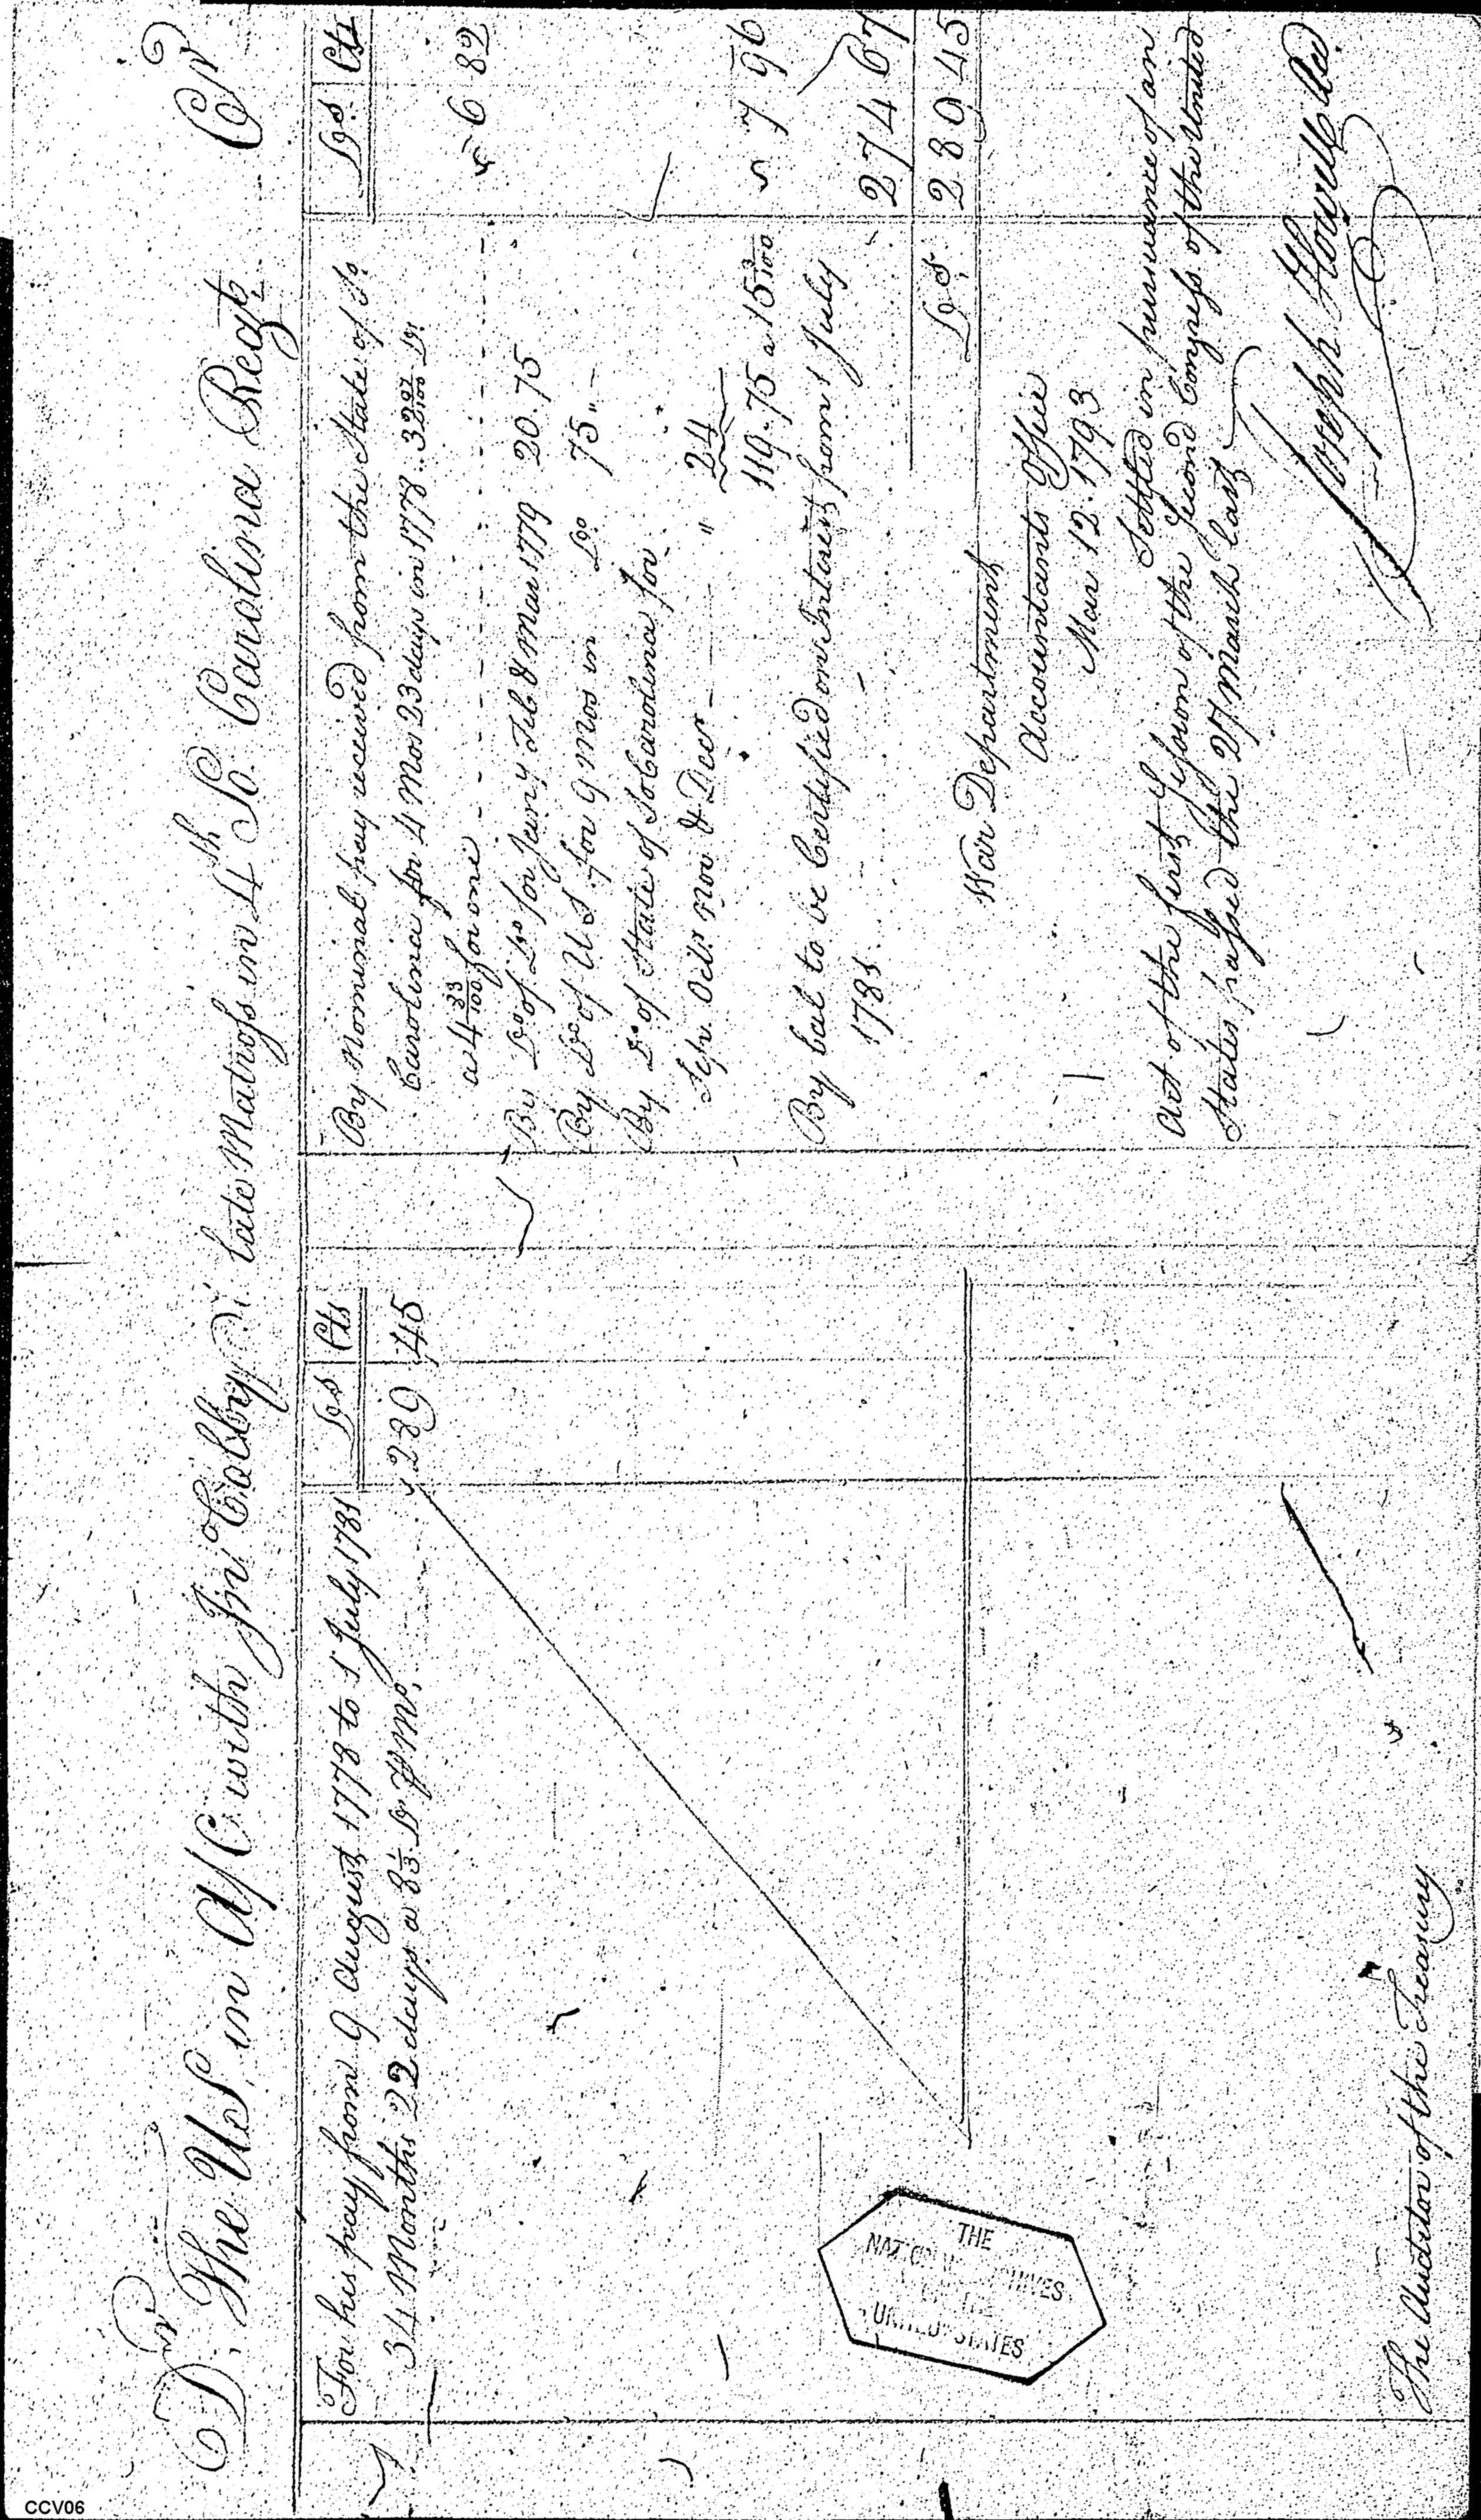 Dr. The U S, in A/C with Jn Calby late Matross in 4th So. Carolina Regt. Cr
Drs Cts
For his pay from 9 August 1778 to 1 July 1781
34 Months 22 days a 8 1/3 Dr. P Mo. 289 45
Drs Cts
By Nominal pay received from the State of So.
Carolina for 4 Mos 23 days in 1778 .. 32 97/100 Drs
a 4 33/100 for one 6 82
By Do. of Do for Jany Feb & Mar 1779 20.75
By Do of U S. for 9 Mos in Do. 75 "
By Do of State of So Carolina for
Sepr. Octr. Nov & Decr " 24
119.75 a 15 3/100 7 96
By bal to be Certified on Interest from 1 July
1781. 274 67
Drs. 289 45
War Department
Accountants Office
Mar 12. 1793
Settled in pursuance of an
Act of the first Session of the Second Congress of the United
States passed the 27 March last
Joseph Howell
The Auditor of the Treasury
THE
NATIONAL ARCHIVES
OF THE
UNITED STATES
CCV06